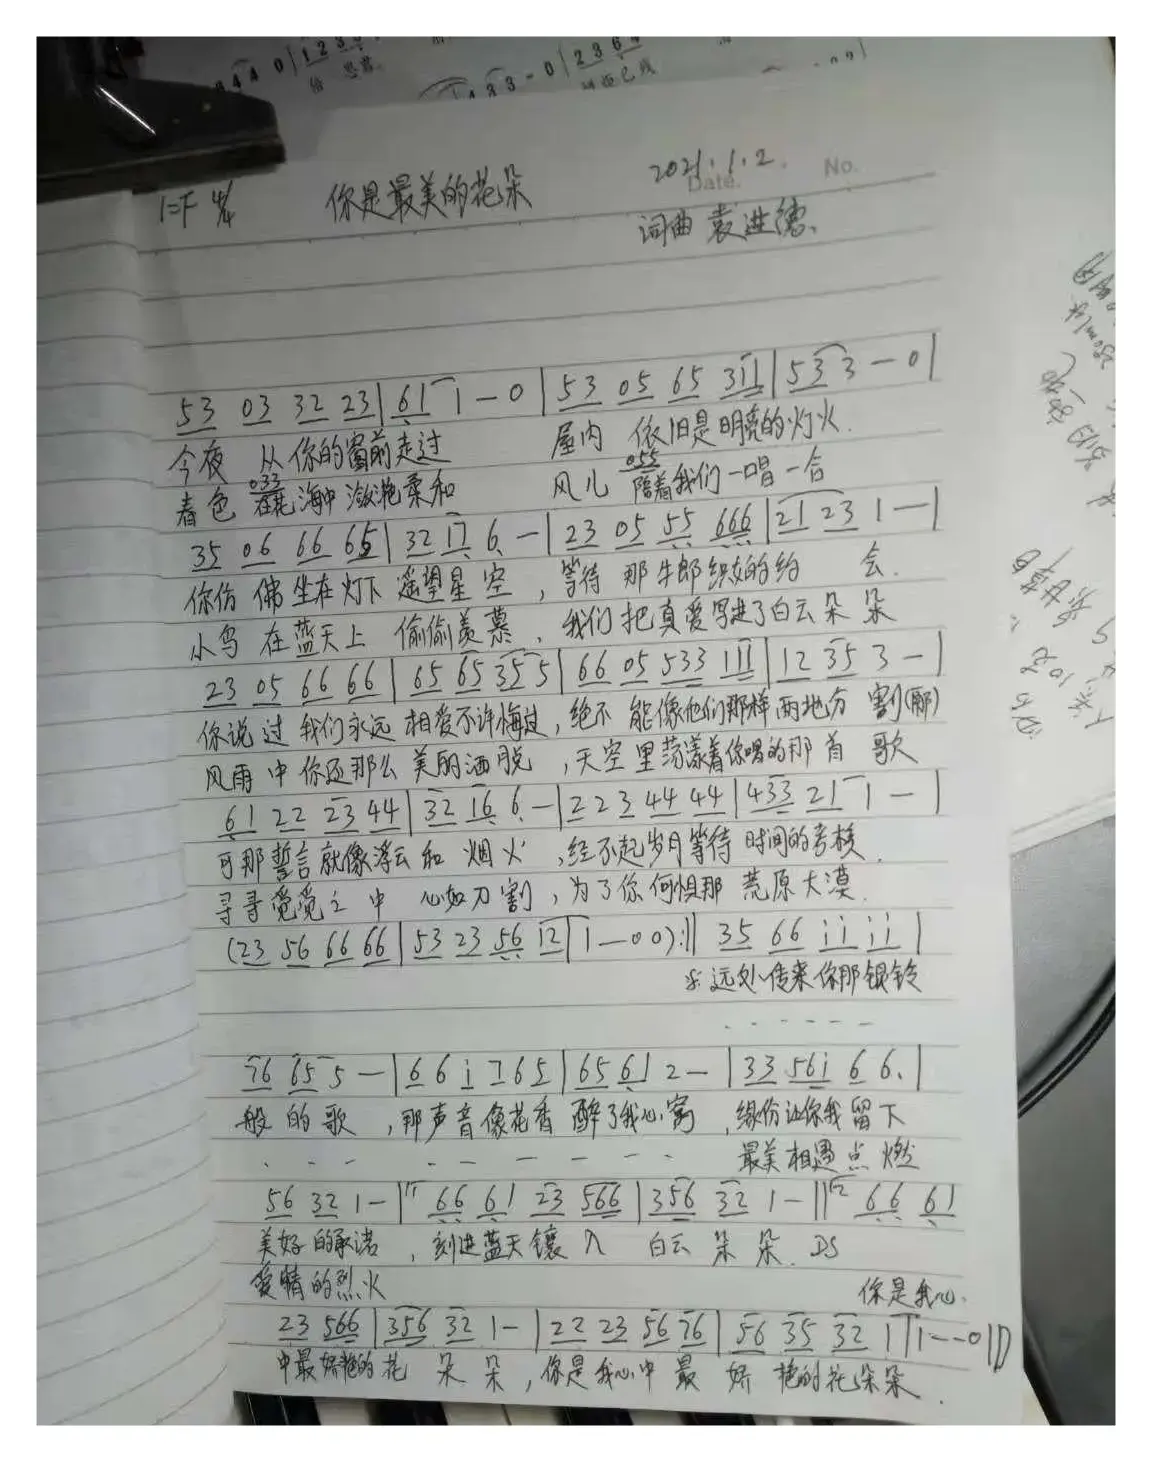 1=F 4/4 你是最美的花朵 2021.1.2.
Date. No.
词曲 袁进德、
53 03 32 23 | 61 1 - 0 | 53 05 65 311 | 53 3 - 0 |
今夜 从你的窗前走过 屋内 依旧是明亮的灯火.
033 055
春色 在花海中潋滟柔和 风儿 陪着我们一唱一合
35 06 66 65 | 32 17 6 - | 23 05 55 666 | 21 23 1 - |
你仿佛坐在灯下遥望星空,等待那牛郎织女的约会.
小鸟在蓝天上偷偷羡慕,我们把真爱写进了白云朵朵
23 05 66 66 | 65 65 35 5 | 66 05 533 111 | 12 35 3 - |
你说过我们永远相爱不许悔过,绝不能像他们那样两地分割(那)
风雨中你还那么美丽洒脱,天空里荡漾着你唱的那首歌
61 22 23 44 | 32 16 6 - | 2 2 3 44 44 | 433 21 1 - |
可那誓言就像浮云和烟火,经不起岁月等待时间的考核.
寻寻觅觅之中心如刀割,为了你何惧那荒原大漠.
(23 56 66 66 | 53 23 56 12 | 1 - 0 0) :|| 35 66 i i i i |
远处传来你那银铃
76 65 5 - | 6 6 i 7 6 5 | 65 61 2 - | 33 56i 6 6. |
般的歌,那声音像花香醉了我心窝,缘份让你我留下
最美相遇点燃
56 32 1 - | 1 66 61 23 566 | 356 32 1 - || 2 66 61
美好的承诺,刻进蓝天镶入白云朵朵. DS
爱情的烈火 你是我心.
23 566 | 356 32 1 - | 22 23 56 76 | 56 35 32 1 | 1 - - 0 ||
中最娇艳的花朵朵,你是我心中最娇艳的花朵朵.